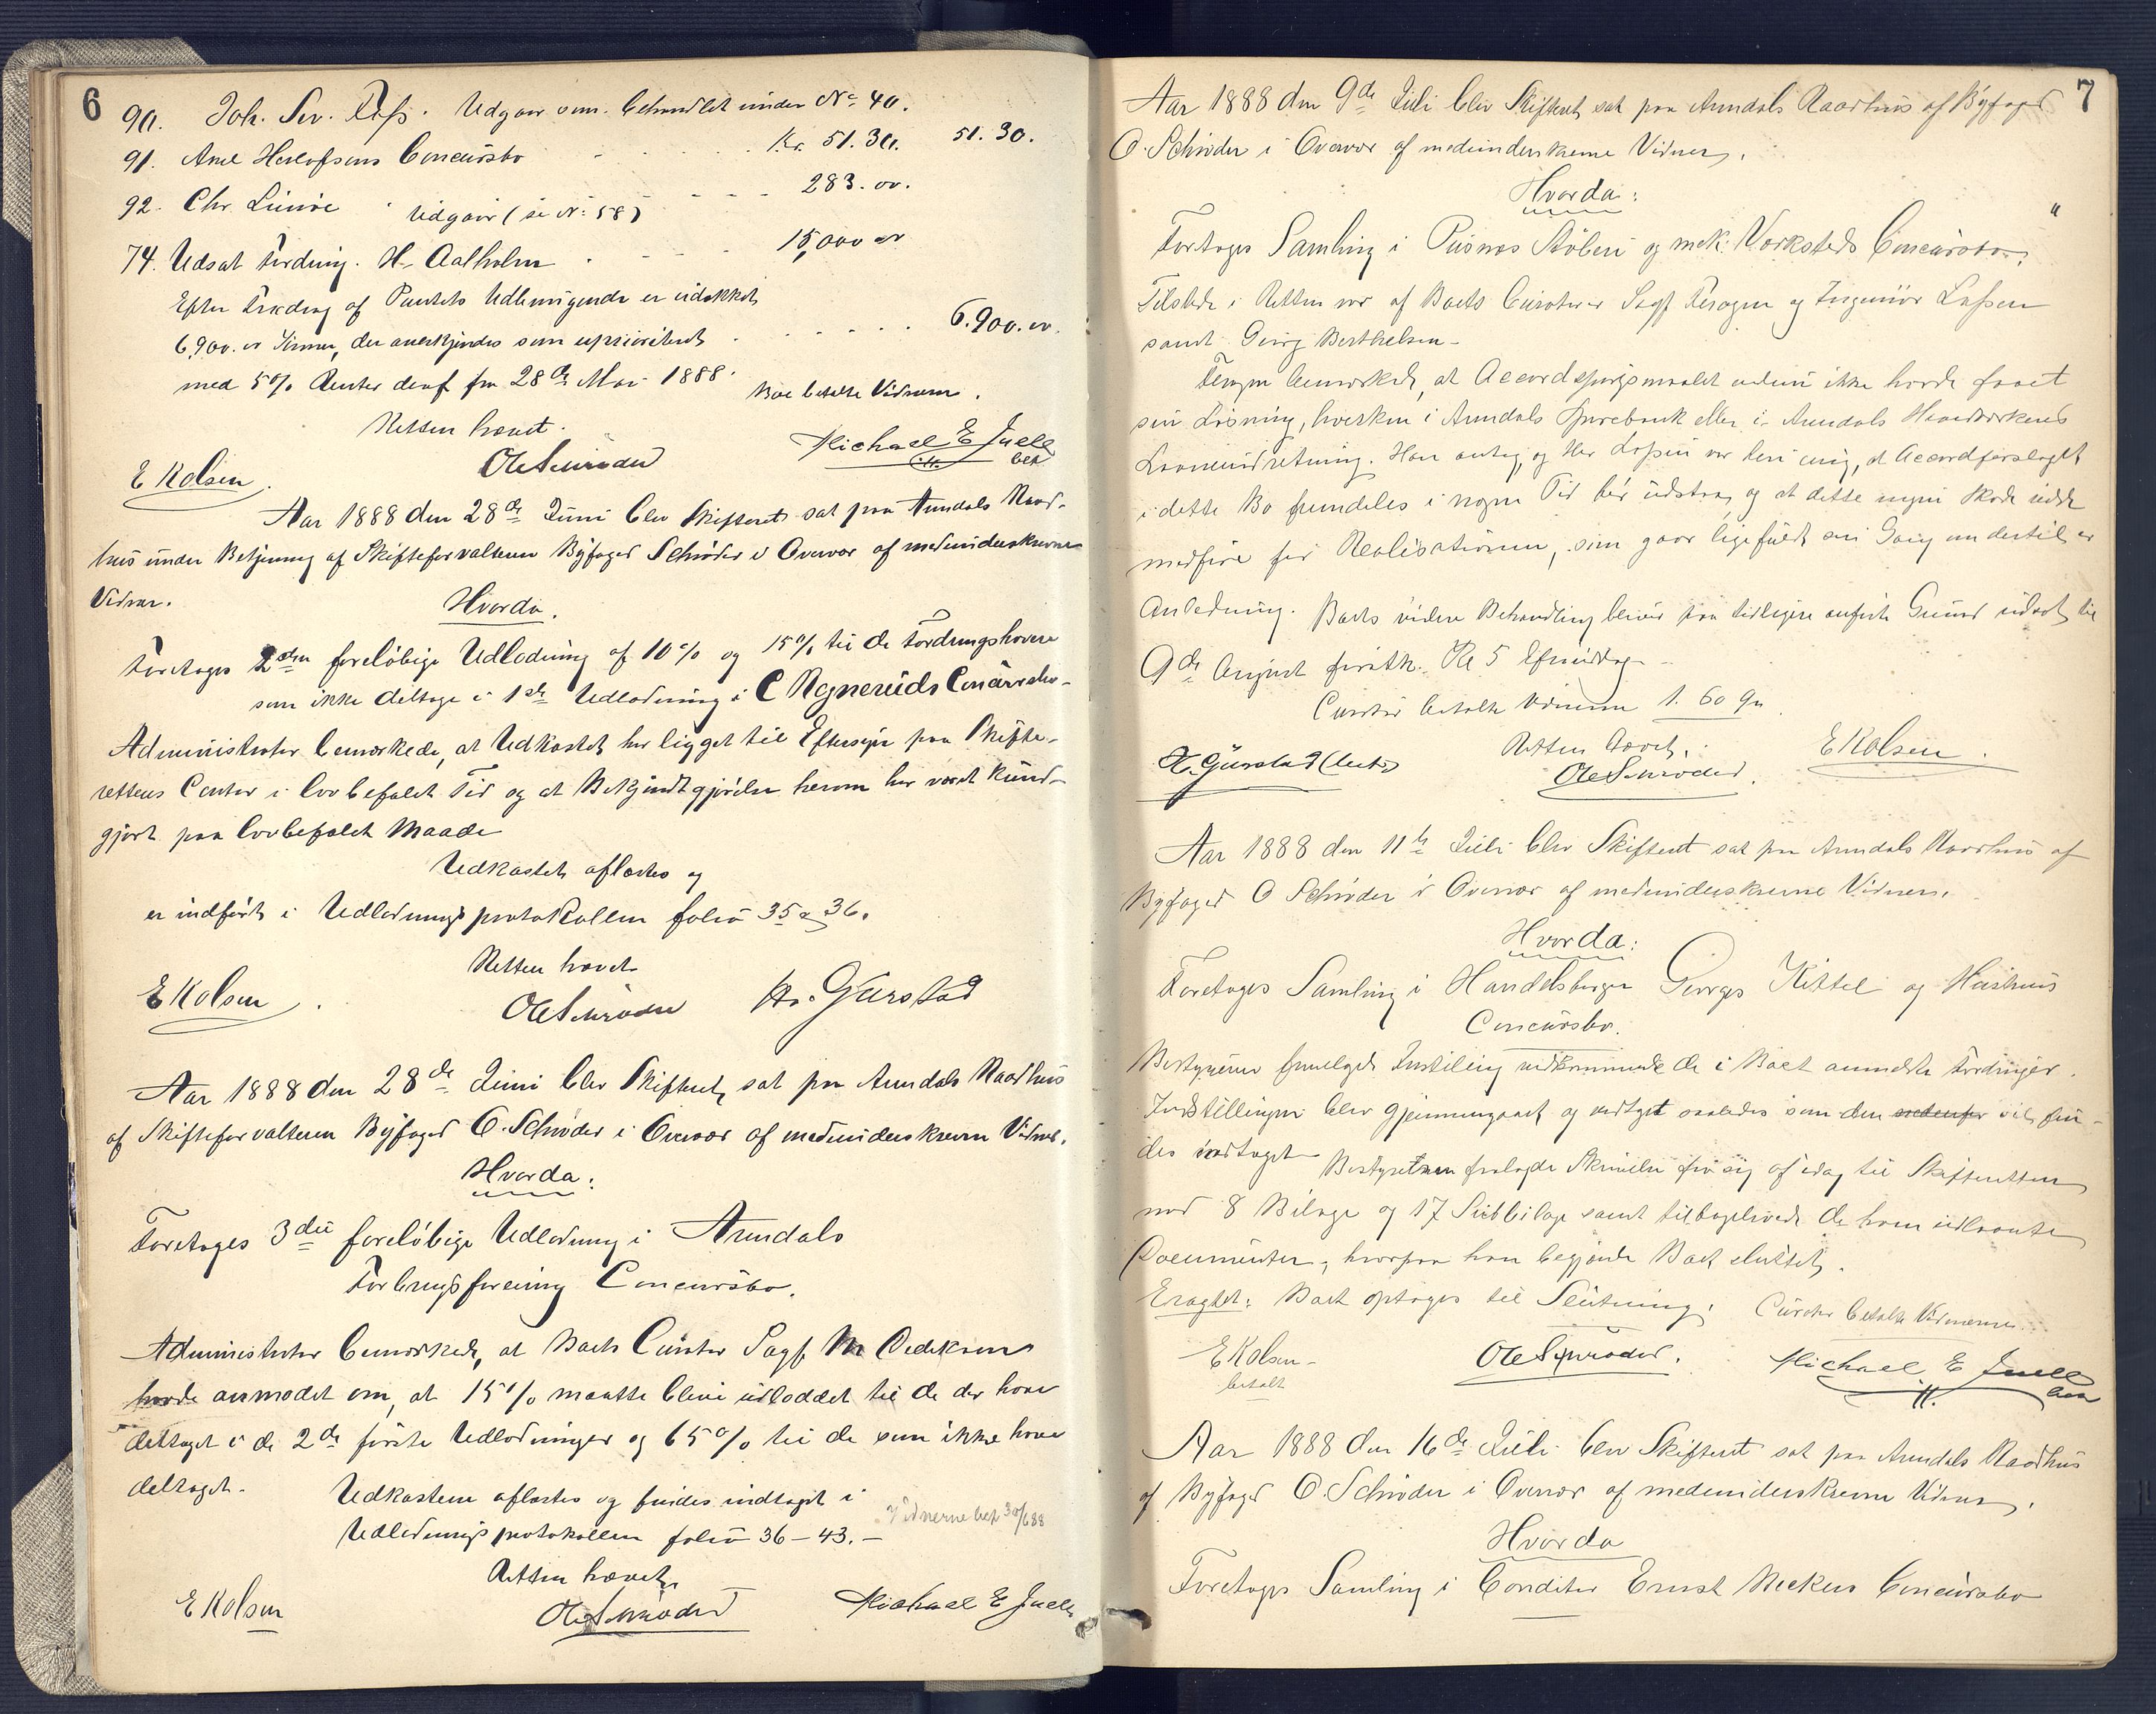 6
90. Joh. Sev. Udgaar som behandlet under No 40.
91. Axel Herlofsens Concursbo Kr. 51.30. 51.30.
92. Chr. Udgaar (se No 58) 283.00.
74. Udsat Fordring. H. Aalholm 15,000 00
Efter Fradrag af Pantets Udbringende er udækket
6,900.00 Kroner, der anerkjendes som uprioriteret 6.900.00.
med 5% Renter deraf fra 28de Mai 1888.
Boe betalte Vidnerne.
Retten hævet.
E Kolsen. Ole Schrøder Michael E Juell
bet
Aar 1888 den 28de Juni blev Skifteret sat paa Arendals Raad-
hus under Betjening af Skifteforvalteren Byfoged Schrøder i Overvær af medunderskrevne
Vidner.
Hvorda.
Foretoges 2den foreløbige Udlodning af 10% og 15% til de Fordringshavere
som ikke deltoge i 1ste Udlodning i C Concursbo-
Administrator bemærkede, at Udkastet har ligget til Eftersyn paa Skifte-
rettens Contor i lovbefalet Tid og at Bekjendtgjørelse herom har været kund-
gjort paa lovbefalet Maade
Udkastet oplæstes og
er indført i Udlodningsprotokollen folio 35 og 36.
Retten hævet
E Kolsen. Ole Schrøder
Aar 1888 den 28de Juni blev Skifteret sat paa Arendals Raadhus
af Skifteforvalteren Byfoged O. Schrøder i Overvær af medunderskrevne Vidner.
Hvorda:
Foretoges 3die foreløbige Udlodning i Arendals
Forbrugsforening Concursbo.
Administrator bemærkede, at Boets Curator Sagf. Dedekam
havde anmodet om, at 15% maatte blive udloddet til de der have
deltaget i de 2de første Udlodninger og 65% til de som ikke have
deltaget.
Udkastene oplæstes og findes indtaget i
Vidnerne bet 30/6 88
Udlodningsprotokollen folio 36-43.-
Retten hævet
E Kolsen Ole Schrøder Michael E Juell
7
Aar 1888 den 9de Juli blev Skifteret sat paa Arendals Raadhus af Byfoged
O. Schrøder i Overvær af medunderskrevne Vidner.
Hvorda:
Foretoges Samling i Pusnes Støberi og mek. Værksteds Concursbo.
Tilstede i Retten var af Boets Curatorer Sagf. og Ingeniør
samt Georg Berthelsen-
bemærkede, at Accordspørgsmaalet endnu ikke havde faaet
sin Løsning, hverken i Arendals Sparebank eller i Arendals Haandværkeres
Laaneindretning. Han antog, og Her var deri enig, at Accordforslaget
i dette Bo fremdeles i nogen Tid bør udstaa, og at dette ingen Skade vilde
medføre for Realisationen, som gaar ligefuldt sin Gang undertil er
Anledning. Boets videre Behandling bliver paa tidligere anført Grund udsat til
9de August førstk. Kl 5 Eftermiddag-
Curator betalte Vidnerne 1.60 Ør.
Retten hævet. E Kolsen.
Ole Schrøder.
Aar 1888 den 11te Juli blev Skifteret sat paa Arendals Raadhus af
Byfoged O Schrøder i Overvær af medunderskrevne Vidner.
Hvorda:
Foretoges Samling i Handelsborger Georges Kittel og Hustrus
Concursbo.
Bestyreren fremlagde Indstilling vedkommende de i Boet anmeldte Fordringer.
Indstillingen blev gjennemgaaet og vedtaget saaledes som den vil fin-
des indtaget Bestyreren fremlagde Skrivelse fra sig af idag til Skifteretten
med 8 Bilage og 17 Subbilage samt tilbageleverede de ham udlaante
Documenter, hvorpaa han begjærede Boet sluttet.
Eragtet: Boet optages til Slutning. Curator betalte Vidnerne.
E Kolsen- Ole Schrøder. Michael E Juell
betalt
Aar 1888 den 16de Juli blev Skifteret sat paa Arendals Raadhus
af Byfoged O. Schrøder i Overvær af medunderskrevne Vidner.
Hvorda
Foretoges Samling i Conditor Ernst Concursbo